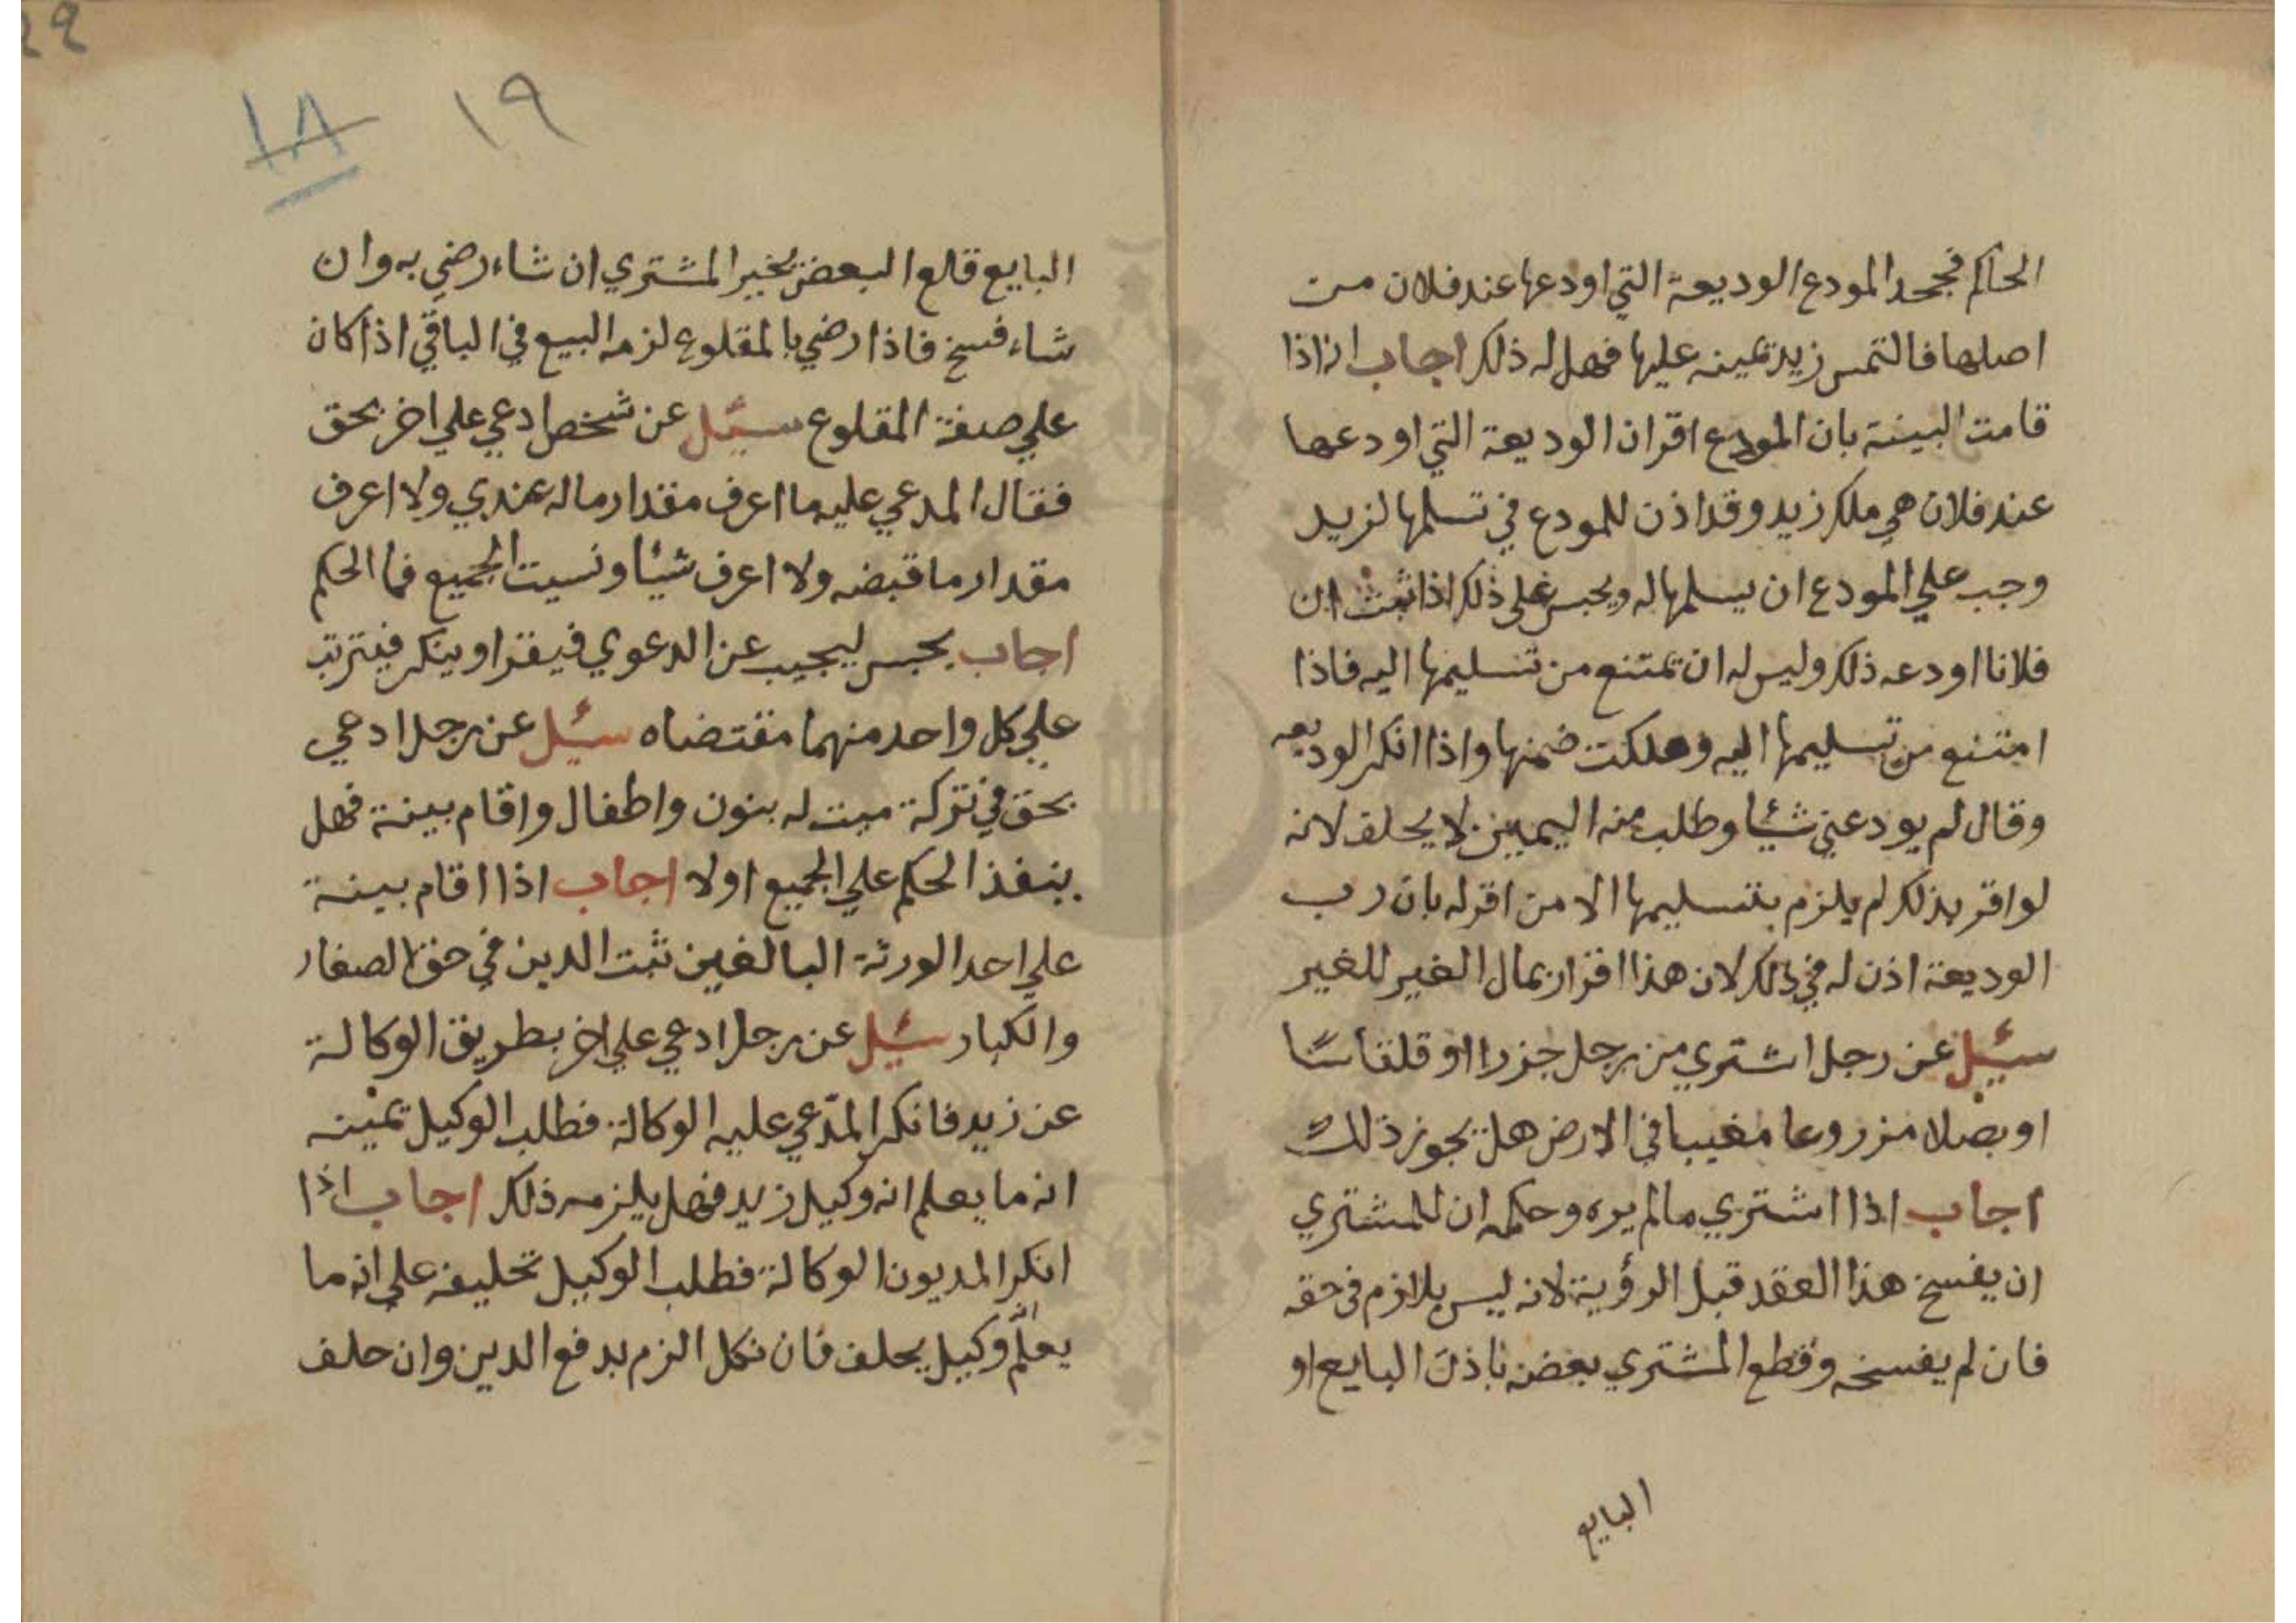 الحاكم فجحد المودع الوديعة التي اودعها عند فلان من
اصلها فالتمس زيد يمينه عليها فهل له ذلك اجاب انه اذا
قامت البينة بان المودع اقر ان الوديعة التي اودعها
عند فلان هي ملك زيد وقد اذن للمودع في تسلمها لزيد
وجب علي المودع ان يسلمها له ويحبس علي ذلك اذا ثبت ان
فلانا اودعه ذلك وليس له ان يمتنع من تسليمها اليه فاذا
امتنع من تسليمها اليه وهلكت ضمنها واذا انكر الوديعه
وقال لم يودعني شيئا وطلب منه اليمين لا يحلف لانه
لو اقر بذلك لم يلزم بتسليمها الا من اقر له بان رب
الوديعة اذن له في ذلك لان هذا اقرار بمال الغير للغير
سئيل عن رجل اشتري من رجل جزرا او قلقاسا
او بصلا مزروعا مغيبا في الارض هل يجوز ذلك
اجاب اذا اشتري مالم يره وحكمه ان للمشتري
ان يفسخ هذا العقد قبل الرؤية لانه ليس بلازم في حقه
فان لم يفسخه وقطع المشتري بعضه باذن البايع او
البايع
١٩
١٨
البايع قلع البعض يخير المشتري ان شاء رضي به وان
شاء فسخ فاذا رضي بالمقلوع لزمه البيع في الباقي اذا كان
علي صفة المقلوع سئيل عن شخص ادعي علي اخر بحق
فقال المدعي عليه ما اعرف مقدار ماله عندي ولا اعرف
مقدار ما قبضه ولا اعرف شيئا ونسيت الجميع فما الحكم
اجاب يحبس ليجيب عن الدعوي فيقر او ينكر فيترتب
علي كل واحد منهما مقتضاه سئيل عن رجل ادعي
بحق في تركة ميت له بنون واطفال واقام بينة فهل
ينفذ الحكم علي الجميع اولا اجاب اذا اقام بينة
علي احد الورثة البالغين ثبت الدين في حق الصغار
والكبار سئيل عن رجل ادعي علي اخر بطريق الوكالة
عن زيد فانكر المدّعي عليه الوكالة فطلب الوكيل يمينه
انه ما يعلم انه وكيل زيد فهل يلزمه ذلك اجاب اذا
انكر المديون الوكالة فطلب الوكيل تحليفه علي انه ما
يعلم وكيل يحلف فان نكل الزم بدفع الدين وان حلف